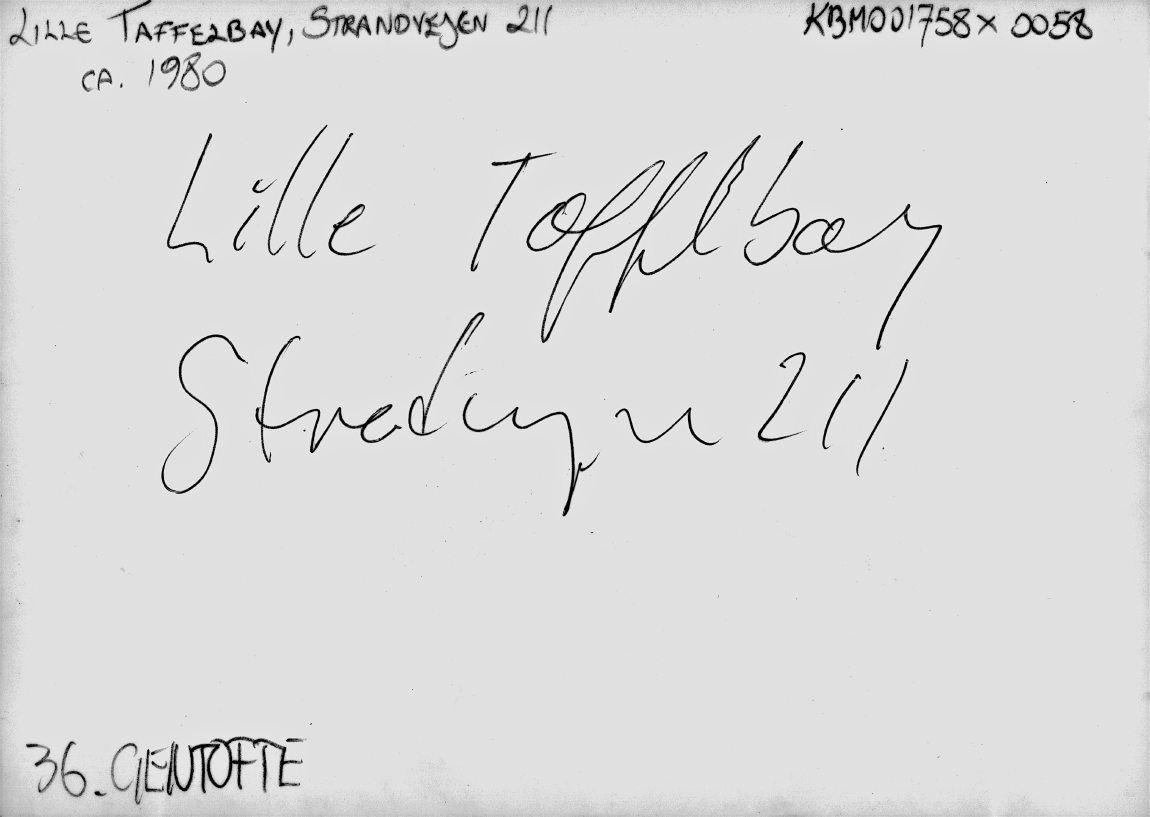 LILLE TAFFELBAY, STRANDVEJEN 211
KBM001758x0058
CA. 1980
Lille Taffelbay
Strandvejen 211
36. GENTOFTE